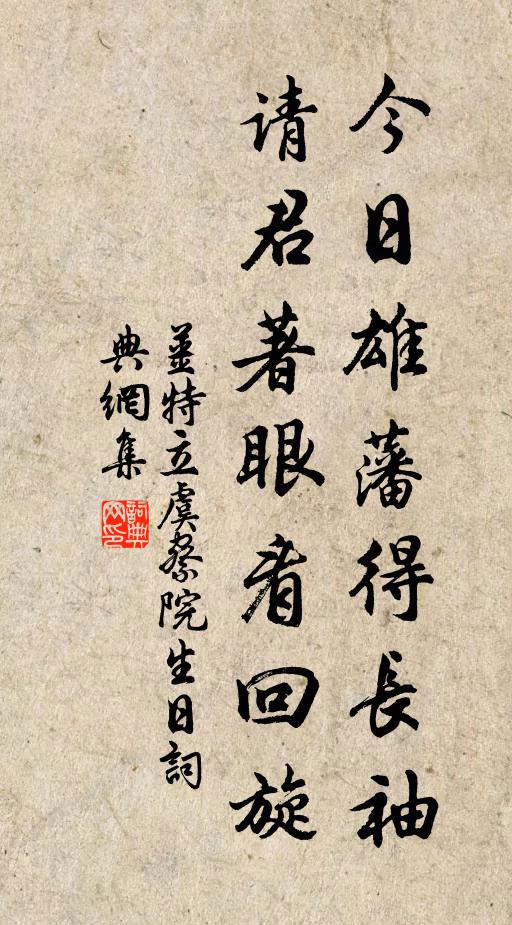 今日雄藩得長袖
请君著眼看回旋
姜特立虞察院生日詞
典網集
詞典網印